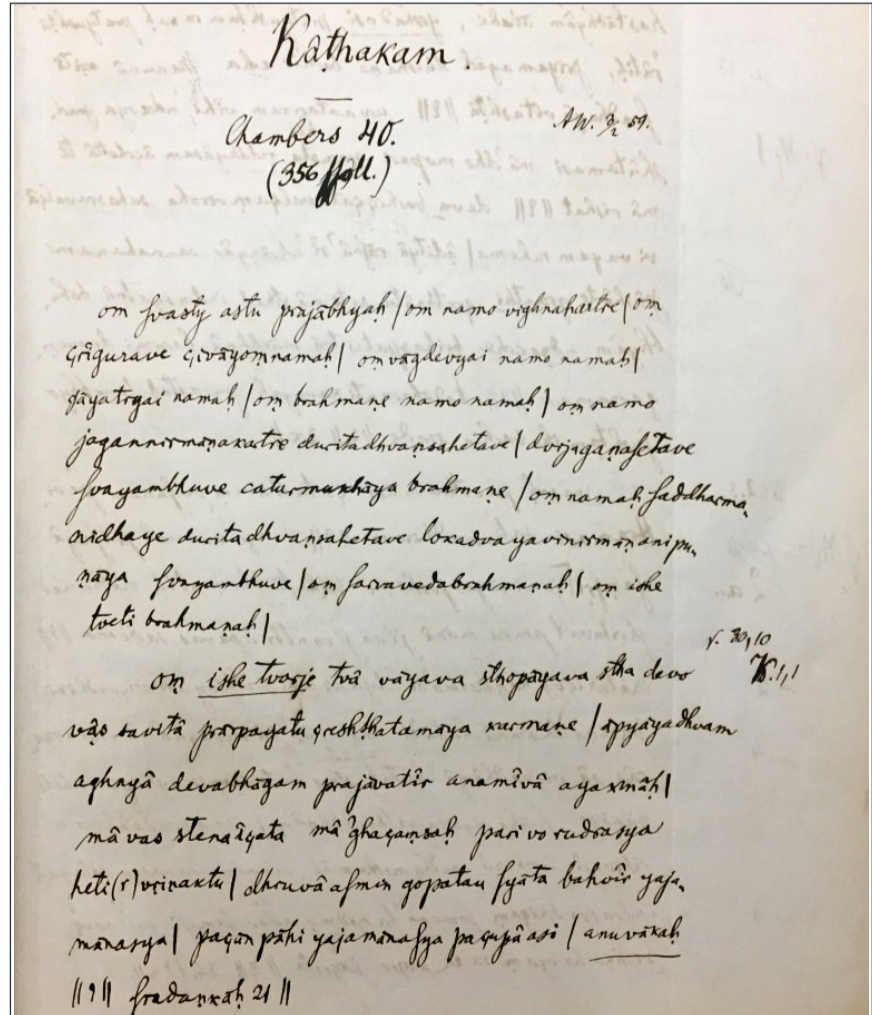 Kāṭhakam.
Chambers 40.
AW. 3/2 59.
(356 foll.)
om svasty astu prajābhyaḥ | om namo vighnahartre | oṃ
çrîgurave çivāyoṃnamaḥ | oṃ vāgdevyai namo namaḥ |
gāyatryai namaḥ | oṃ brahmaṇe namo namaḥ | oṃ namo
jagannirmāṇakartre duritadhvaṅsahetave | dvijagaṇasetave
svayambhuve caturmukhāya brahmaṇe | oṃ namaḥ saddharma-
nidhaye duritadhvaṅsahetave lokadvayavinirmāṇanipu-
ṇāya svayambhuve | oṃ sarvavedabrahmaṇaḥ | oṃ ishe
tveti brahmaṇaḥ |
v. 30,10
K. 1,1
oṃ ishe tvorje tvâ vāyava sthopāyava stha devo
vas savitâ prārpayatu çreshṭhatamāya karmaṇe | āpyāyadhvam
aghnyâ devabhāgam prajāvatîr anamîvâ ayaxmāḥ |
mâ vas stena îçata mâ 'ghaçaṃsaḥ pari vo rudrasya
heti(r) vṛiṇaktu | dhruvâ asmin gopatau syāta bahvîr yaja-
mānasya | paçûn pāhi yajamānasya paçupâ asi | anuvākaḥ
|| 1 || 21 ||